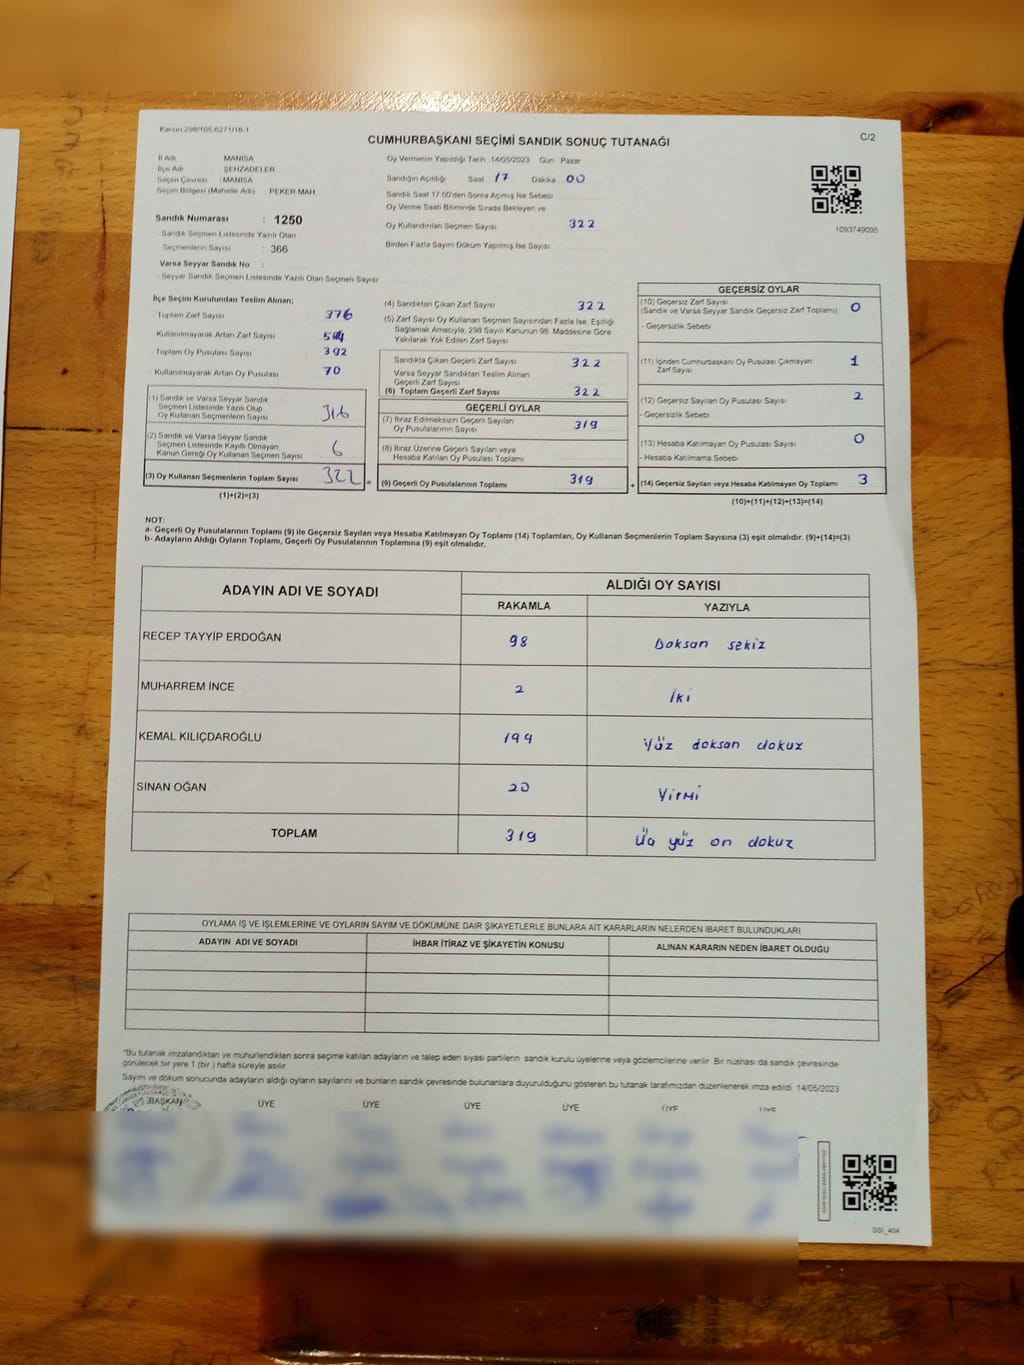 Kanun:298/105,6271/18-1
CUMHURBAŞKANI SEÇİMİ SANDIK SONUÇ TUTANAĞI
C/2
İl Adı MANİSA
İlçe Adı ŞEHZADELER
Seçim Çevresi : MANİSA
Seçim Bölgesi (Mahalle Adı) PEKER MAH
Sandık Numarası : 1250
Sandık Seçmen Listesinde Yazılı Olan
Seçmenlerin Sayısı : 366
Varsa Seyyar Sandık No :
Seyyar Sandık Seçmen Listesinde Yazılı Olan Seçmen Sayısı
Oy Vermenin Yapıldığı Tarih :14/05/2023 Gün Pazar
Sandığın Açıldığı Saat 17 Dakika 00
Sandık Saat 17:00'den Sonra Açılmış İse Sebebi
Oy Verme Saati Bitiminde Sırada Bekleyen ve
Oy Kullandırılan Seçmen Sayısı 322
Birden Fazla Sayım Döküm Yapılmış İse Sayısı
1093749095
İlçe Seçim Kurulundan Teslim Alınan;
Toplam Zarf Sayısı 376
Kullanılmayarak Artan Zarf Sayısı
Toplam Oy Pusulası Sayısı 392
Kullanılmayarak Artan Oy Pusulası 70
(1) Sandık ve Varsa Seyyar Sandık
Seçmen Listesinde Yazılı Olup
Oy Kullanan Seçmenlerin Sayısı 316
(2) Sandık ve Varsa Seyyar Sandık
Seçmen Listesinde Kayıtlı Olmayan
Kanun Gereği Oy Kullanan Seçmen Sayısı 6
(3) Oy Kullanan Seçmenlerin Toplam Sayısı 322 =
(1)+(2)=(3)
(4) Sandıktan Çıkan Zarf Sayısı 322
(5) Zarf Sayısı Oy Kullanan Seçmen Sayısından Fazla İse, Eşitliği
Sağlamak Amacıyla; 298 Sayılı Kanunun 98. Maddesine Göre
Yakılarak Yok Edilen Zarf Sayısı
Sandıkta Çıkan Geçerli Zarf Sayısı 322
Varsa Seyyar Sandıktan Teslim Alınan
Geçerli Zarf Sayısı
(6) Toplam Geçerli Zarf Sayısı 322
GEÇERLİ OYLAR
(7) İtiraz Edilmeksizin Geçerli Sayılan
Oy Pusulalarının Sayısı 319
(8) İtiraz Üzerine Geçerli Sayılan veya
Hesaba Katılan Oy Pusulası Toplamı
(9) Geçerli Oy Pusulalarının Toplamı 319 +
GEÇERSİZ OYLAR
(10) Geçersiz Zarf Sayısı
(Sandık ve Varsa Seyyar Sandık Geçersiz Zarf Toplamı) 0
- Geçersizlik Sebebi
(11) İçinden Cumhurbaşkanı Oy Pusulası Çıkmayan
Zarf Sayısı 1
(12) Geçersiz Sayılan Oy Pusulası Sayısı 2
- Geçersizlik Sebebi
(13) Hesaba Katılmayan Oy Pusulası Sayısı 0
- Hesaba Katılmama Sebebi
(14) Geçersiz Sayılan veya Hesaba Katılmayan Oy Toplamı 3
(10)+(11)+(12)+(13)=(14)
NOT:
a- Geçerli Oy Pusulalarının Toplamı (9) ile Geçersiz Sayılan veya Hesaba Katılmayan Oy Toplamı (14) Toplamları, Oy Kullanan Seçmenlerin Toplam Sayısına (3) eşit olmalıdır. (9)+(14)=(3)
b- Adayların Aldığı Oyların Toplamı, Geçerli Oy Pusulalarının Toplamına (9) eşit olmalıdır.
ADAYIN ADI VE SOYADI ALDIĞI OY SAYISI
RAKAMLA YAZIYLA
RECEP TAYYİP ERDOĞAN 98 Doksan sekiz
MUHARREM İNCE 2 İki
KEMAL KILIÇDAROĞLU 199 Yüz doksan dokuz
SİNAN OĞAN 20 Yirmi
TOPLAM 319 Üç yüz on dokuz
OYLAMA İŞ VE İŞLEMLERİNE VE OYLARIN SAYIM VE DÖKÜMÜNE DAİR ŞİKAYETLERLE BUNLARA AİT KARARLARIN NELERDEN İBARET BULUNDUKLARI
ADAYIN ADI VE SOYADI İHBAR İTİRAZ VE ŞİKAYETİN KONUSU ALINAN KARARIN NEDEN İBARET OLDUĞU
"Bu tutanak imzalandıktan ve mühürlendikten sonra seçime katılan adayların ve talep eden siyasi partilerin sandık kurulu üyelerine veya gözlemcilerine verilir. Bir nüshası da sandık çevresinde
görülecek bir yere 1 (bir) hafta süreyle asılır
Sayım ve döküm sonucunda adayların aldığı oyların sayılarını ve bunların sandık çevresinde bulunanlara duyurulduğunu gösteren bu tutanak tarafımızdan düzenlenerek imza edildi. 14/05/2023
BAŞKAN ÜYE ÜYE ÜYE ÜYE ÜYE ÜYE
SSI_404